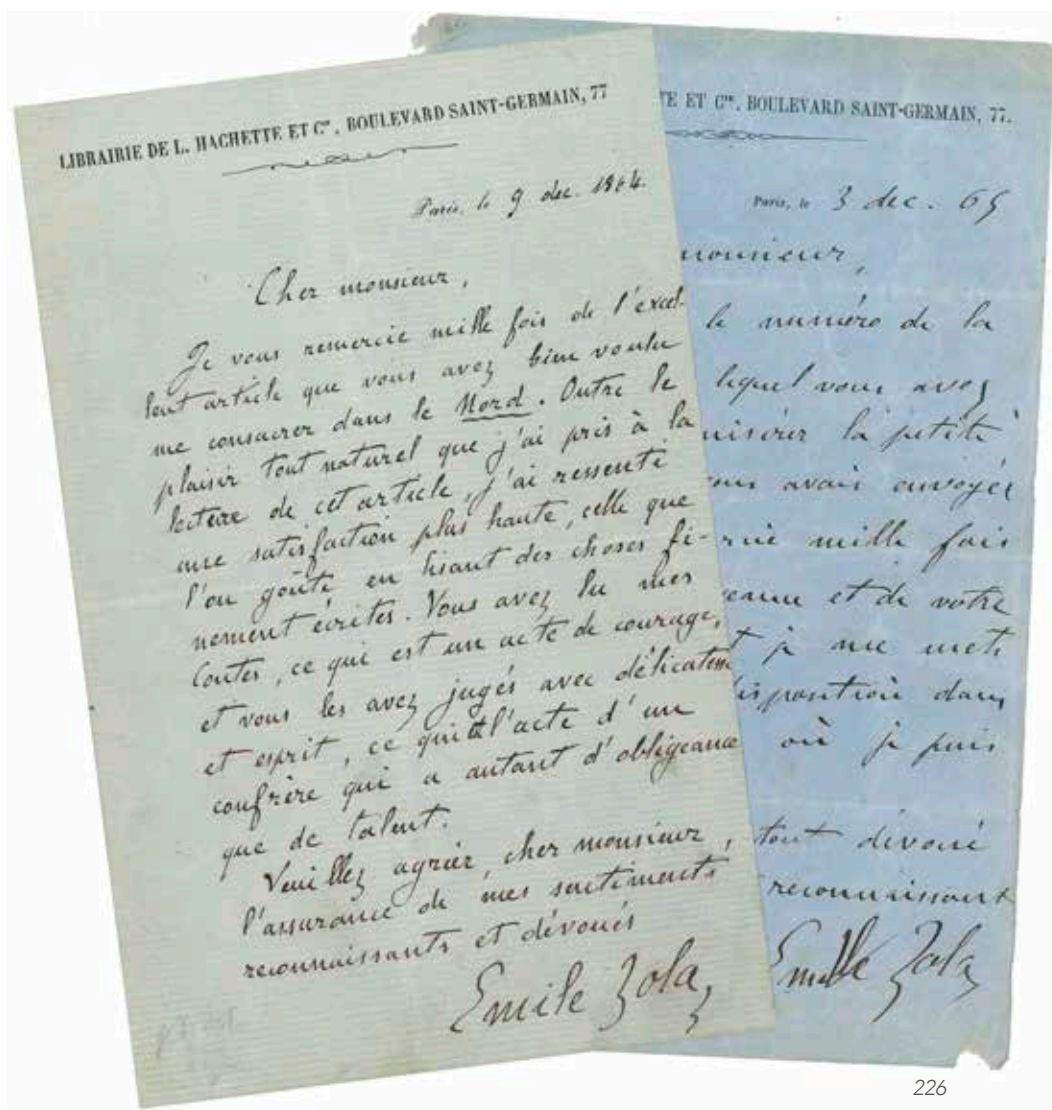 LIBRAIRIE DE L. HACHETTE ET Cie, BOULEVARD SAINT-GERMAIN, 77
Paris, le 9 dec. 1864.
Cher monsieur,
Je vous remercie mille fois de l'excel-
lent article que vous avez bien voulu
me consacrer dans le Nord. Outre le
plaisir tout naturel que j'ai pris à la
lecture de cet article, j'ai ressenti
une satisfaction plus haute, celle que
l'on goûte en lisant des choses fi-
nement écrites. Vous avez lu mes
Contes, ce qui est un acte de courage,
et vous les avez jugés avec délicatesse
et esprit, ce qui est l'acte d'un
confrère qui a autant d'obligeance
que de talent.
Veuillez agréer, cher monsieur,
l'assurance de mes sentiments
reconnaissants et dévoués
Emile Zola
TE ET Cie, BOULEVARD SAINT-GERMAIN, 77.
Paris, le 3 dec. 65
monsieur,
le numéro de la
lequel vous avez
insérer la petite
vous avais envoyée
rcie mille fois
geance et de votre
t je me mets
disposition dans
où je puis
tout dévoué
reconnaissant
Emile Zola
226